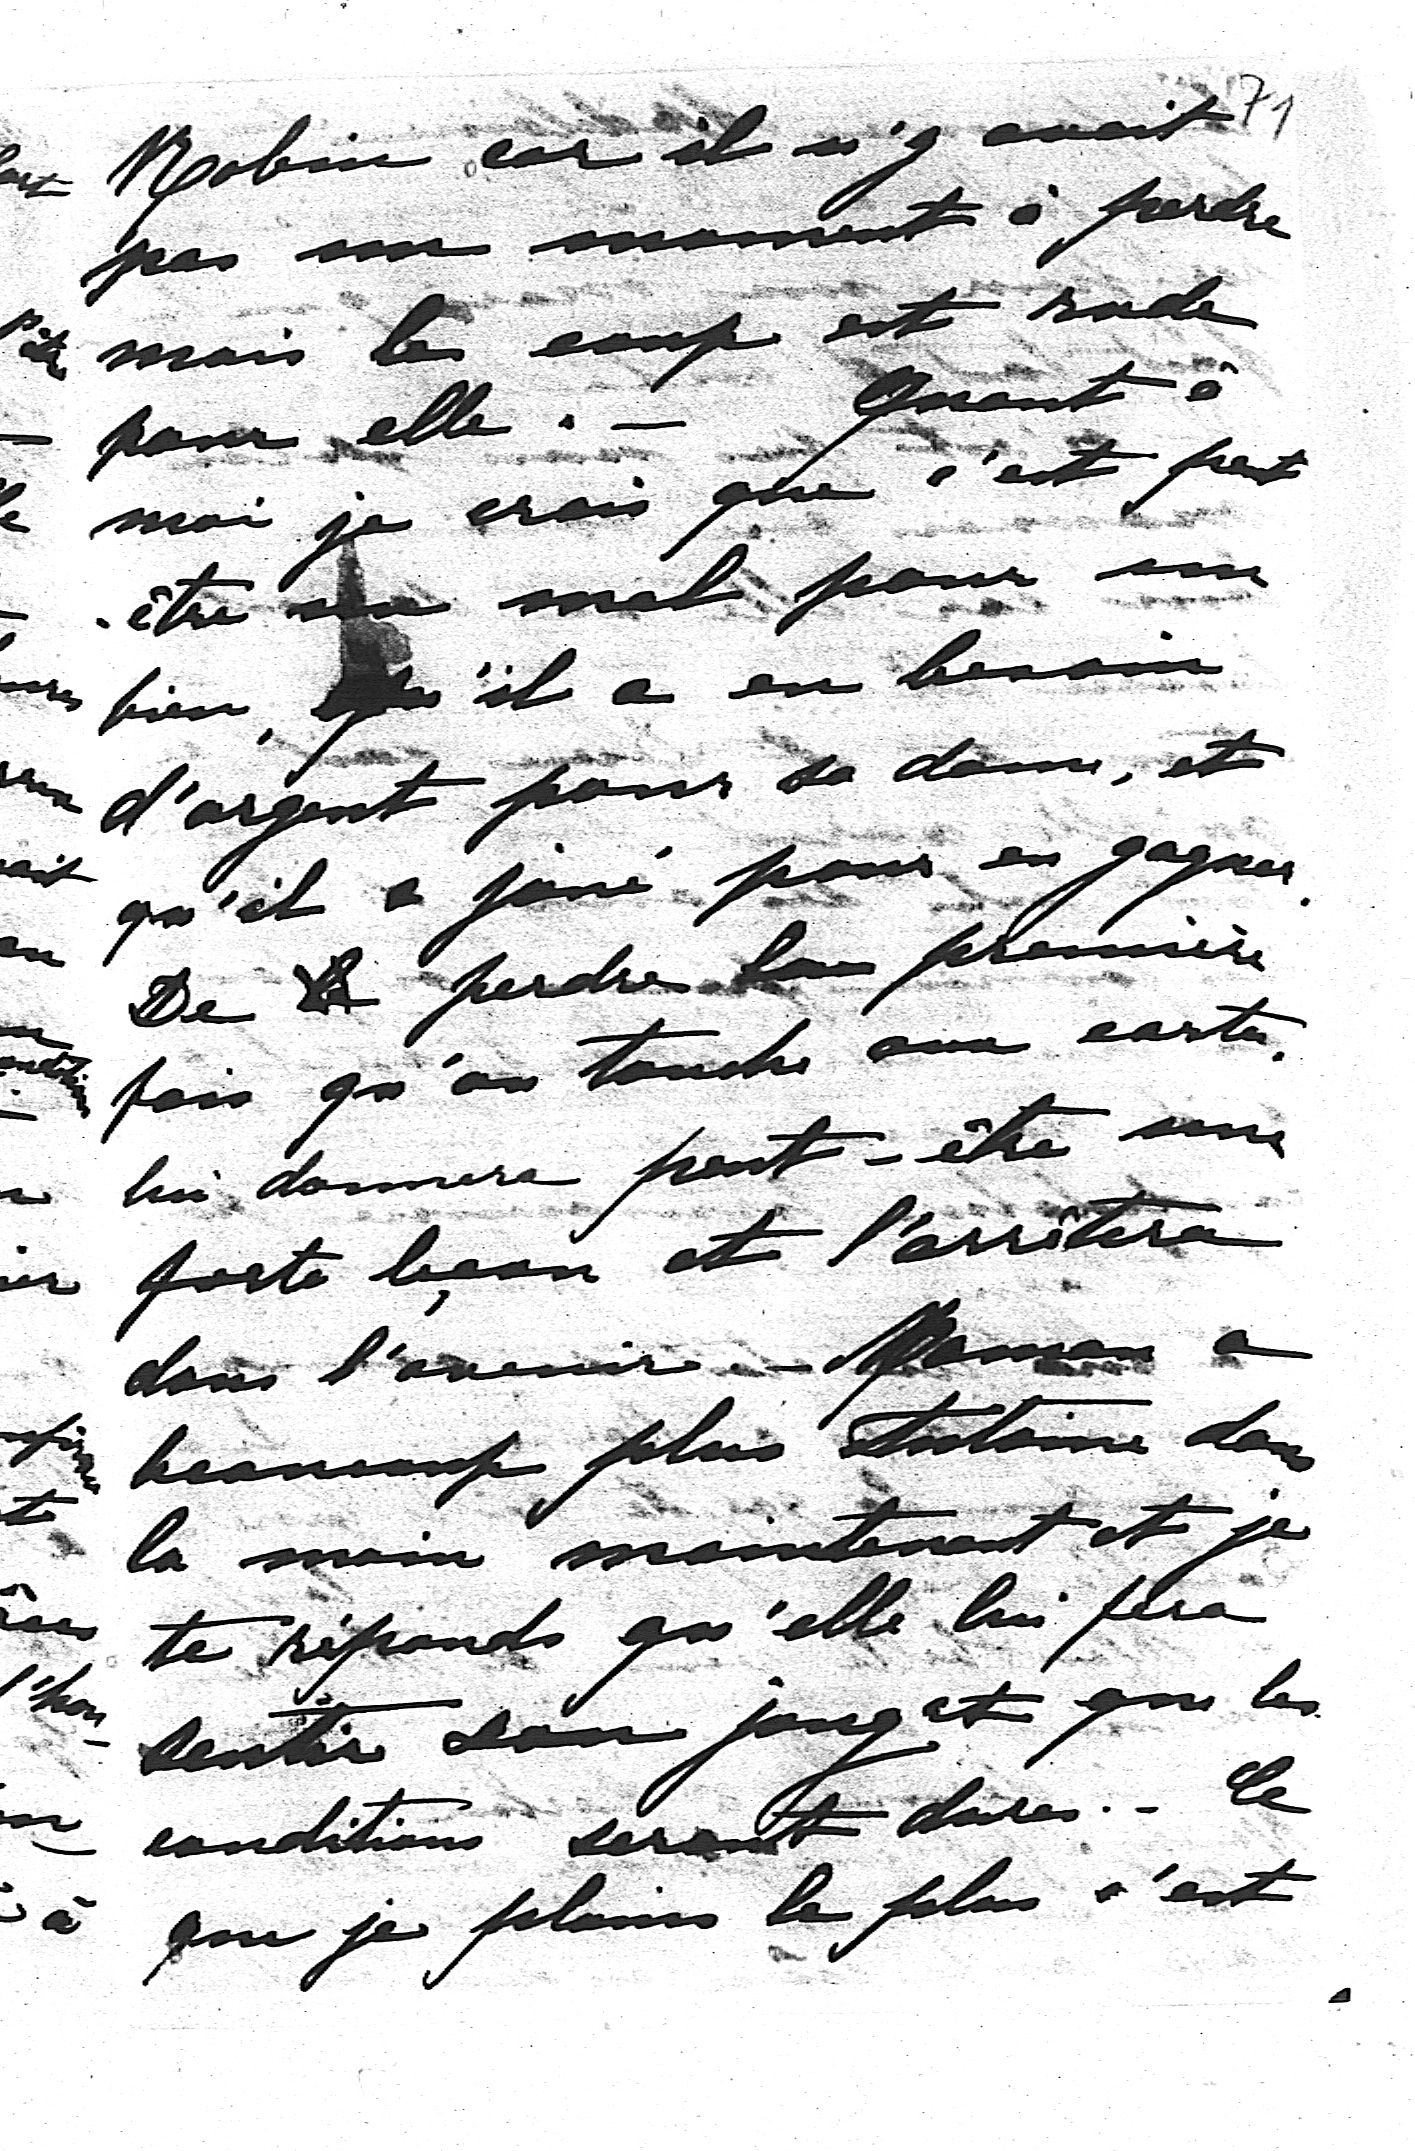 71
Robin car il n'y avait
pas un moment à perdre
mais le coup est rude
pour elle. — Quant à
moi je crois que c'est peut
-être un mal pour un
bien, qu'il a eu besoin
d'argent pour sa dame, et
qu'il a joué pour en gagner.
De perdre la première
fois qu'on touche aux cartes,
lui donnera peut-être une
forte leçon et l'arrêtera
dans l'avenir — Maman a
beaucoup plus Antoine dans
la main maintenant et je
te réponds qu'elle lui fera
sentir son joug et que les
conditions seront dures. - Ce
que je plains le plus c'est